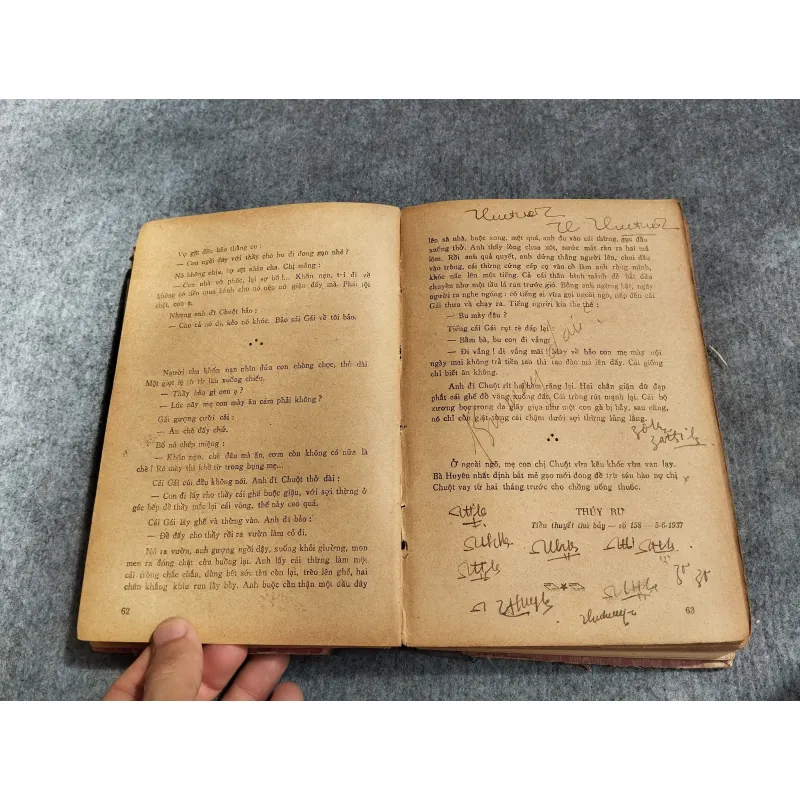 Vợ gật đầu bảo thằng cu :
— Con ngồi đây với thầy cho bu đi đong gạo nhé ?
Nó không chịu, họ rột nhăn nhó. Chị mắng :
— Con nhà vô phúc, lại sợ bố !... Khốn nạn, t-i đi về
không có tiền mua bánh cho nó nên nó giận đấy mà. Phải tội
chết, con ạ.
Nhưng anh đĩ Chuột bảo :
— Cho cả nó đi, kẻo nó khóc. Bảo cái Gái về tôi bảo.
Người cha khốn nạn nhìn đứa con chòng chọc, thở dài
Một giọt lệ từ từ lăn xuống chiếu.
— Thầy bảo gì con ạ ?
— Lúc nãy mẹ con mày ăn cám phải không ?
Gái gượng cười cãi :
— Ăn chè đấy chứ.
Bố nó chép miệng :
— Khốn nạn, chè đâu mà ăn, cơm còn không có nữa là
chè ! Rõ mày thì khổ từ trong bụng mẹ...
Cái Gái cúi đầu không nói. Anh đĩ Chuột thở dài :
— Con đi lấy cho thầy cái ghế buộc giậu, với sợi thừng ở
góc bếp để thầy mắc lại cái võng, thế này cao quá.
Cái Gái lấy ghế và thừng vào. Anh đĩ bảo :
— Để đấy cho thầy rồi ra vườn làm cỏ đi.
Nó ra vườn, anh gượng ngồi dậy, xuống khỏi giường, mon
men ra đóng chặt cửa buồng lại. Anh lấy cái thừng làm một
cái tròng chắc chắn, dùng hết sức tàn còn lại, trèo lên ghế, hai
chân khẳng khiu run lẩy bẩy. Anh buộc cẩn thận một đầu dây
62
lên xà nhà, buộc xong, mệt quá, anh đu vào cái thừng, gục đầu
xuống thở. Anh thấy lòng chua xót, nước mắt ràn ra hai má
lõm. Rồi anh quả quyết, anh đứng thẳng người lên, chui đầu
vào tròng, cái thừng cứng cáp cọ vào cổ làm anh rùng mình,
khóc nấc lên một tiếng. Cả cái thân hình mảnh dẻ bắt đầu
chuyển như một tàu lá run trước gió. Bỗng anh ngừng bặt, ngây
người ra nghe ngóng : có tiếng ai vừa gọi ngoài ngõ, tiếp đến cái
Gái thưa và chạy ra. Tiếng người kia the thé :
— Bu mày đâu ?
Tiếng cái Gái rụt rè đáp lại :
— Bẩm bà, bu con đi vắng.
— Đi vắng ! đi vắng mãi ! Mày về bảo con mẹ mày nội
ngày mai không trả tiền tao thì tao đào mả lên đấy. Cái giống
chỉ biết ăn không.
Anh đĩ Chuột rít hai hàm răng lại. Hai chân giận dữ đạp
phắt cái ghế đổ văng xuống đất. Cái tròng rút mạnh lại. Cái bộ
xương bọc trong da giãy giụa như một con gà bị bẫy, sau cùng,
nó chỉ còn giật từng cái chậm dưới sợi thừng lủng lẳng.
Ở ngoài ngõ, mẹ con chị Chuột vừa kêu khóc vừa van lạy.
Bà Huyện nhất định bắt mẻ gạo mới đong để trừ sáu hào nợ chị
Chuột vay từ hai tháng trước cho chồng uống thuốc.
THÚY RƯ
Tiểu thuyết thứ bảy — số 158 — 5-6-1937
63